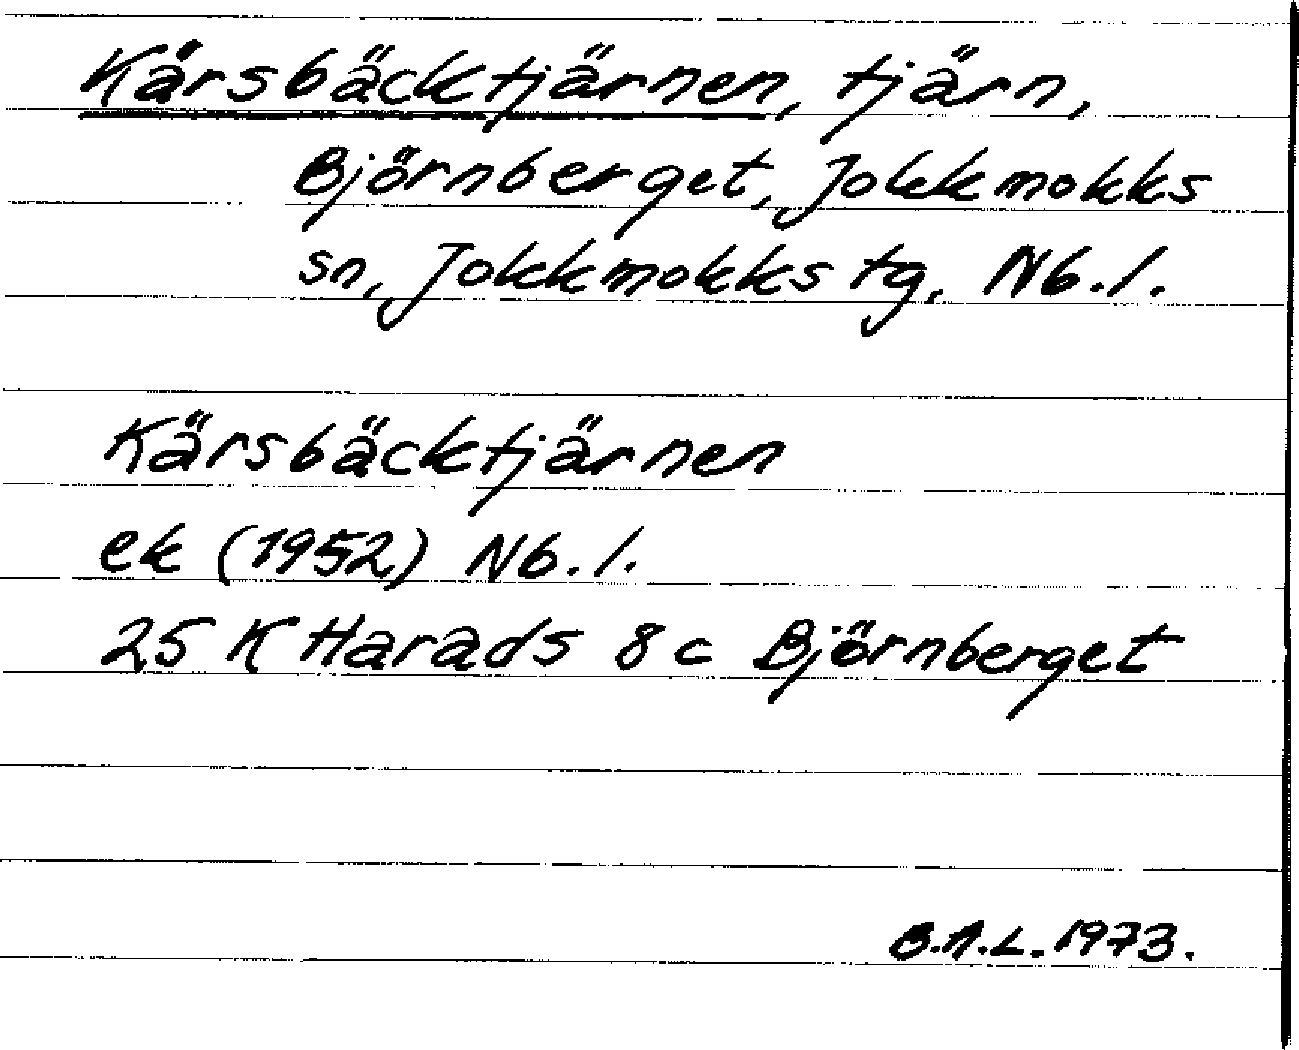 Kärsbäcktjärnen, tjärn,
Björnberget, Jokkmokks
sn, Jokkmokks tg, Nb. l.
Kärsbäcktjärnen
ek (1952) Nb. l.
25 K Harads 8 c Björnberget
B.A.L. 1973.